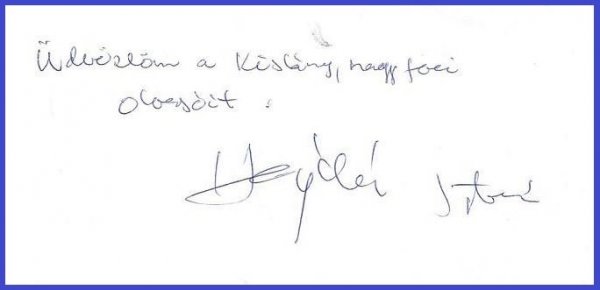 Üdvözlöm a Kislány, nagy foci
olvasóit.
István